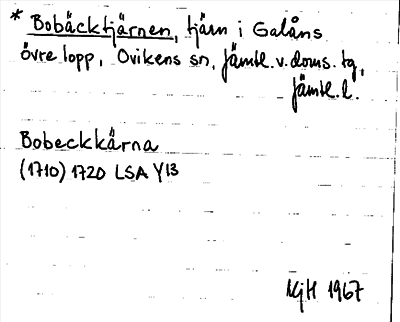 * Bobäcktjärnen, tjärn i Galåns
övre lopp, Ovikens sn, Jämtl. v. doms. tg,
Jämtl. l.
Bobeckkärna
(1710) 1720 LSA Y13
KjH 1967